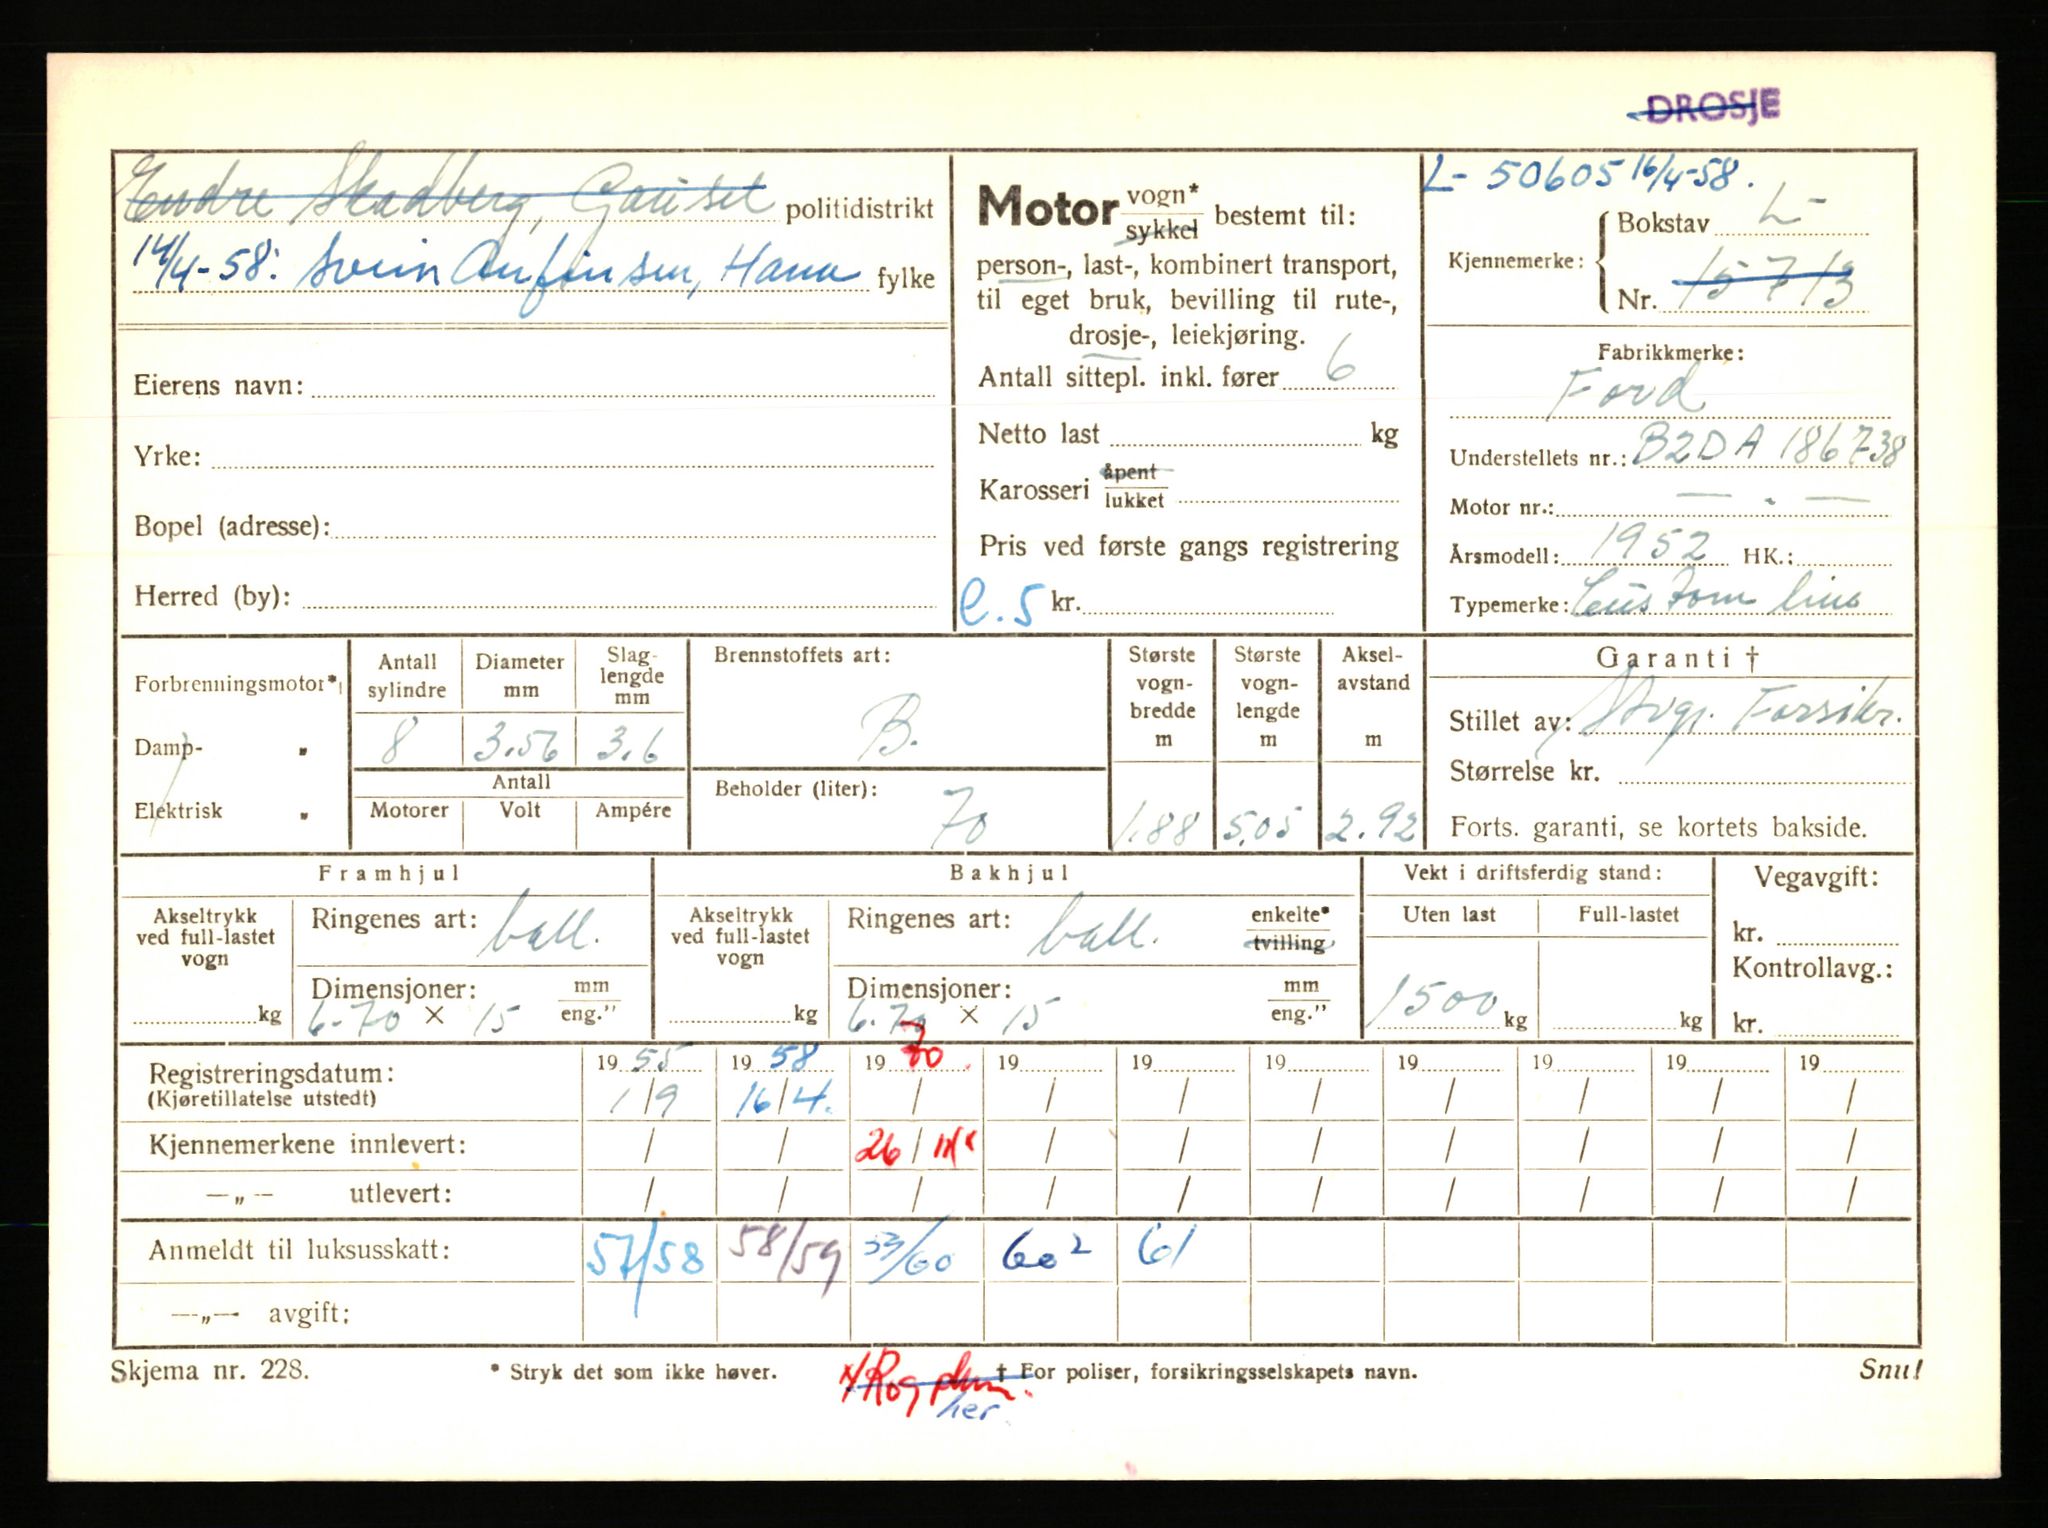 DROSJE
Endre Skadberg, Gausel politidistrikt
14/4-58: Svein Anfinsen, Hana fylke
Eierens navn:
Yrke:
Bopel (adresse):
Herred (by):
Motor vogn* sykkel bestemt til:
person-, last-, kombinert transport,
til eget bruk, bevilling til rute-,
drosje-, leiekjøring.
Antall sittepl. inkl. fører 6
Netto last kg
Karosseri åpent lukket
Pris ved første gangs registrering
e.5 kr.
L- 50605 16/4-58.
Kjennemerke: Bokstav L-
Nr. 15713
Fabrikkmerke:
Ford
Understellets nr.: B2DA 186738
Motor nr.: — . —
Årsmodell: 1952 HK.:
Typemerke: Customline
Forbrenningsmotor*
Damp- „
Elektrisk „
Antall sylindre
Diameter mm
Slag-lengde mm
8 3.56 3.6
Antall
Motorer Volt Ampére
Brennstoffets art:
B.
Beholder (liter):
70
Største vogn-bredde m
1.88
Største vogn-lengde m
5.05
Aksel-avstand m
2.92
Garanti †
Stillet av: Forsikr.
Størrelse kr.
Forts. garanti, se kortets bakside.
Framhjul
Akseltrykk ved full-lastet vogn
kg
Ringenes art: ball.
Dimensjoner: mm
6-70 × 15 eng."
Bakhjul
Akseltrykk ved full-lastet vogn
kg
Ringenes art: ball. enkelte* tvilling
Dimensjoner: mm
6.70 × 15 eng."
Vekt i driftsferdig stand:
Uten last Full-lastet
1500 kg kg
Vegavgift:
kr.
Kontrollavg.:
kr.
Registreringsdatum: 19 55 19 58 19 70 19 19 19 19 19 19 19
(Kjøretillatelse utstedt) 1/9 16/4. / / / / / / / /
Kjennemerkene innlevert: / / 26/ / / / / / / /
—„— utlevert: / / / / / / / / / /
Anmeldt til luksusskatt: 57/58 58/59 59/60 60² 61
—„— avgift:
Skjema nr. 228. * Stryk det som ikke høver. † For poliser, forsikringsselskapets navn. Snu!
her.